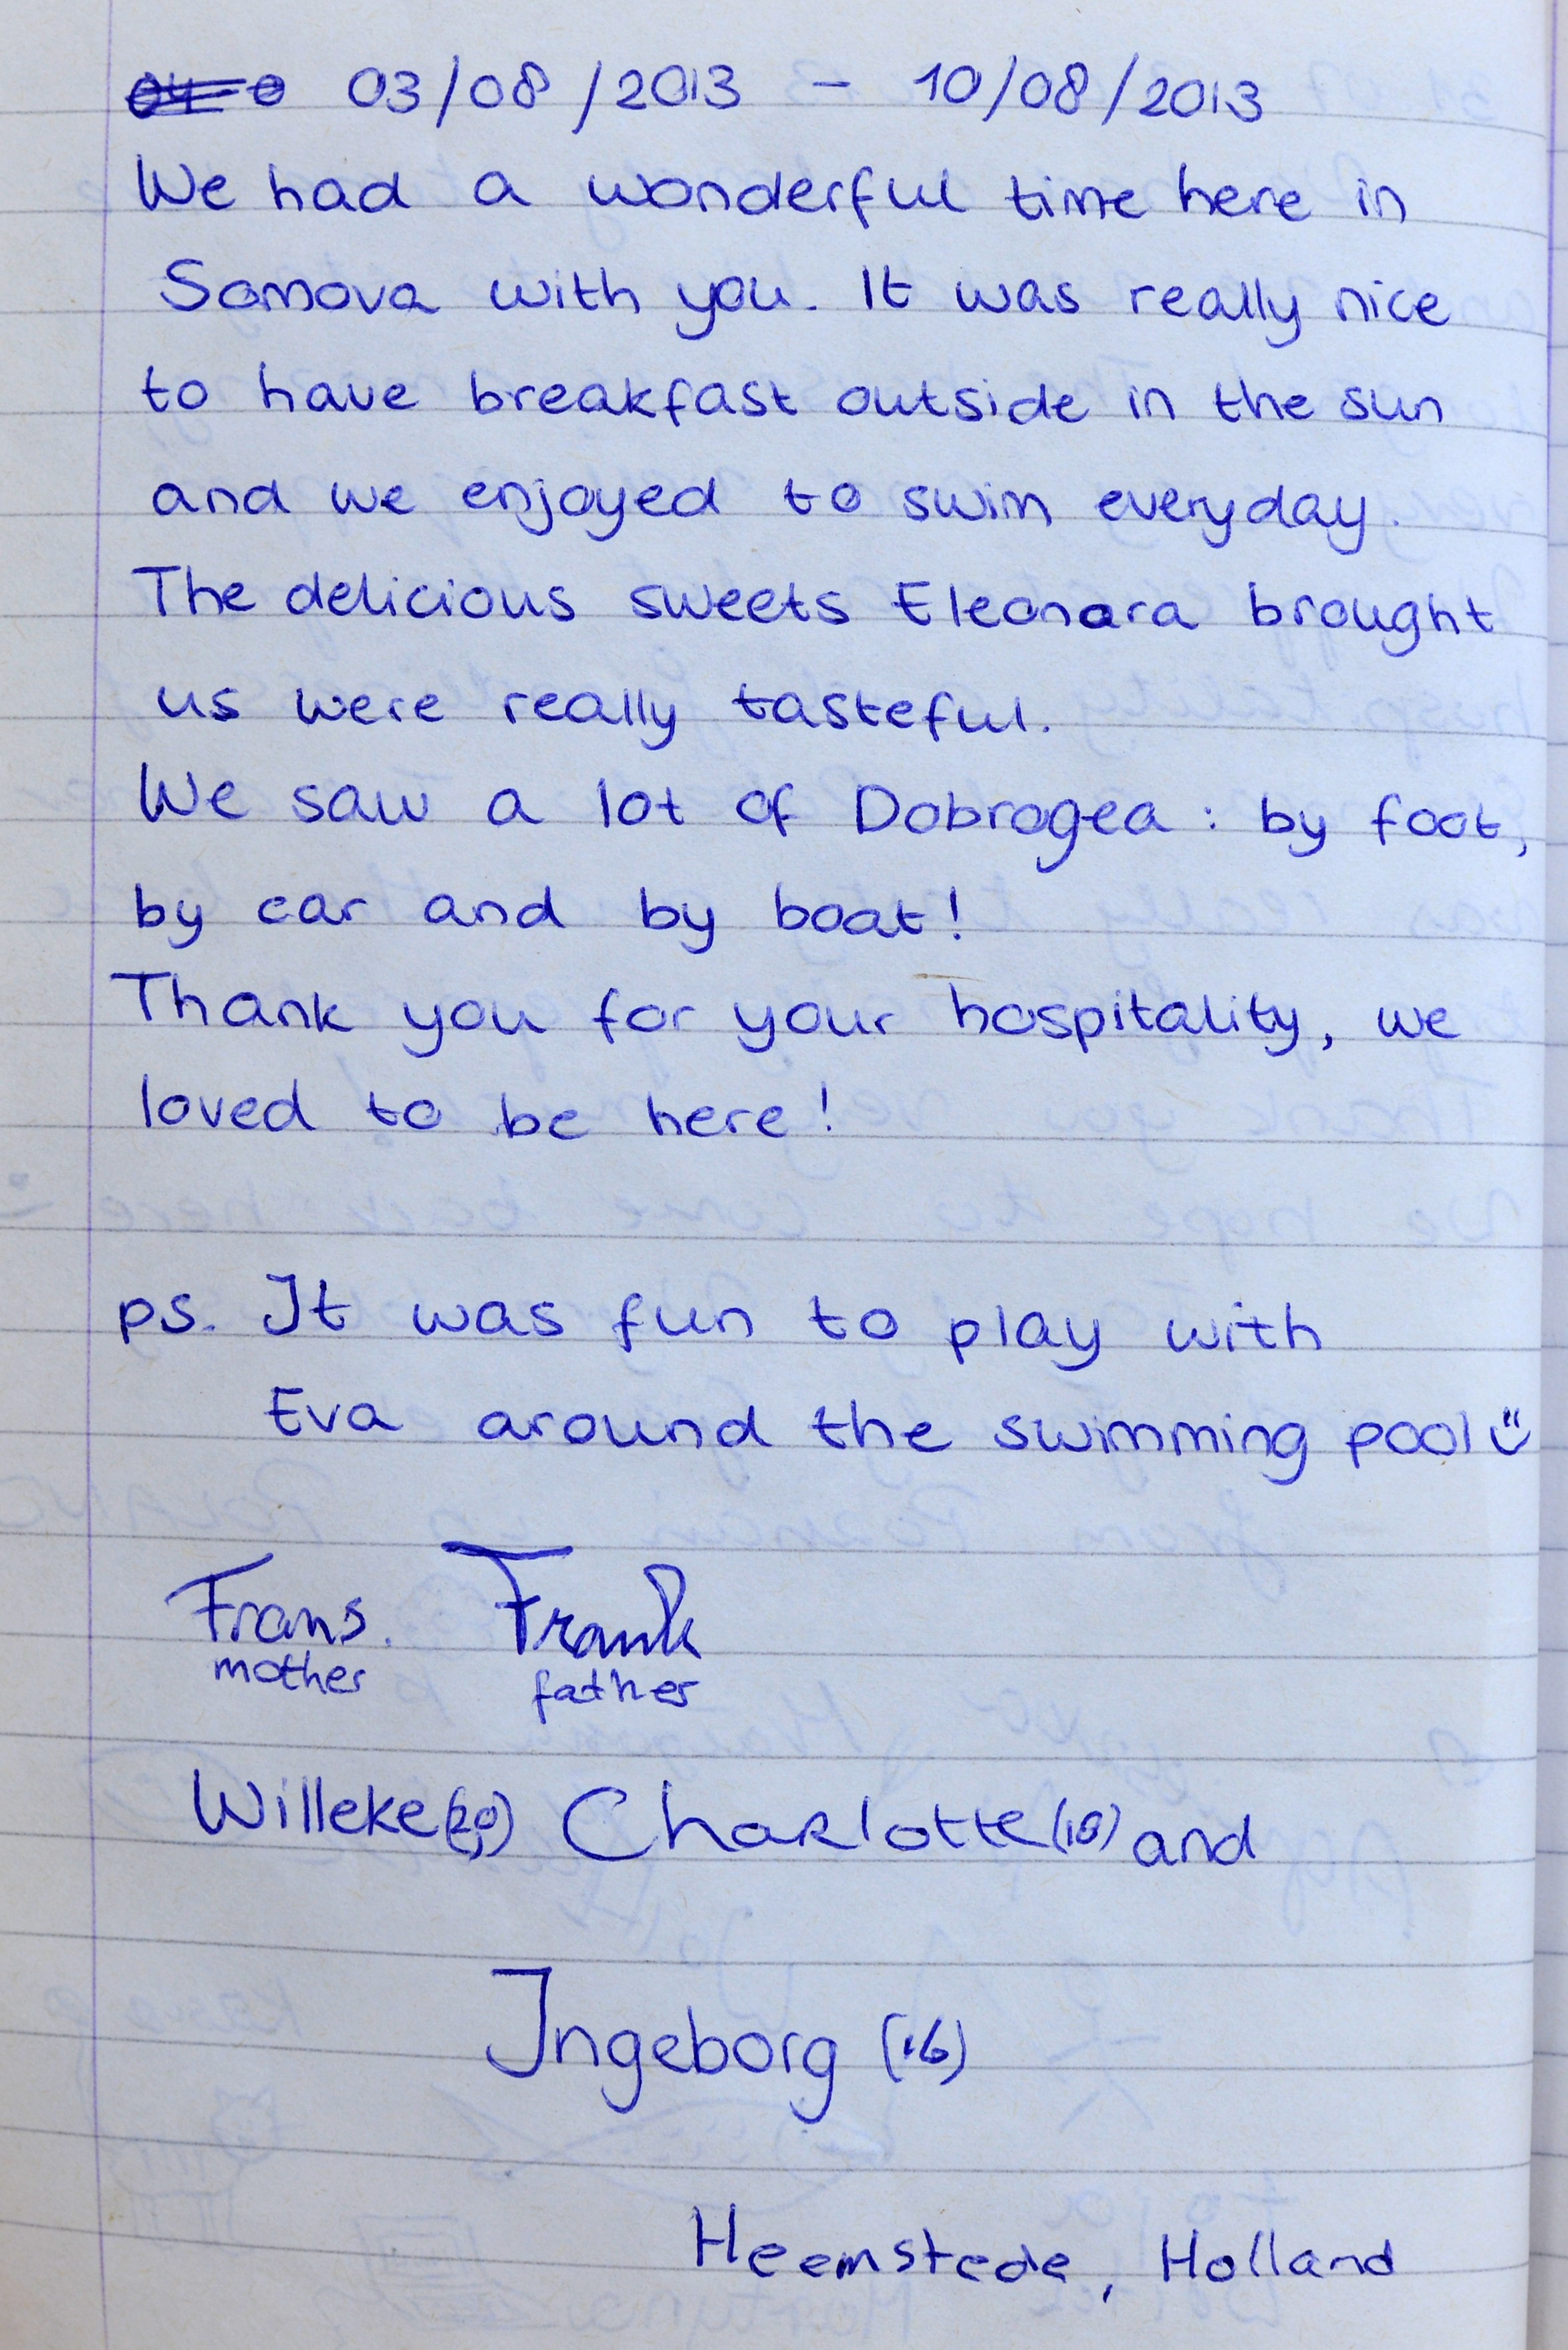 03/08/2013 - 10/08/2013
We had a wonderful time here in
Somova with you. It was really nice
to have breakfast outside in the sun
and we enjoyed to swim everyday.
The delicious sweets Eleonora brought
us were really tasteful.
We saw a lot of Dobrogea : by foot,
by car and by boat!
Thank you for your hospitality, we
loved to be here!
ps. It was fun to play with
Eva around the swimming pool
Frans. Frank
mother father
Willeke(20) Charlotte(18) and
Ingeborg (16)
Heemstede, Holland